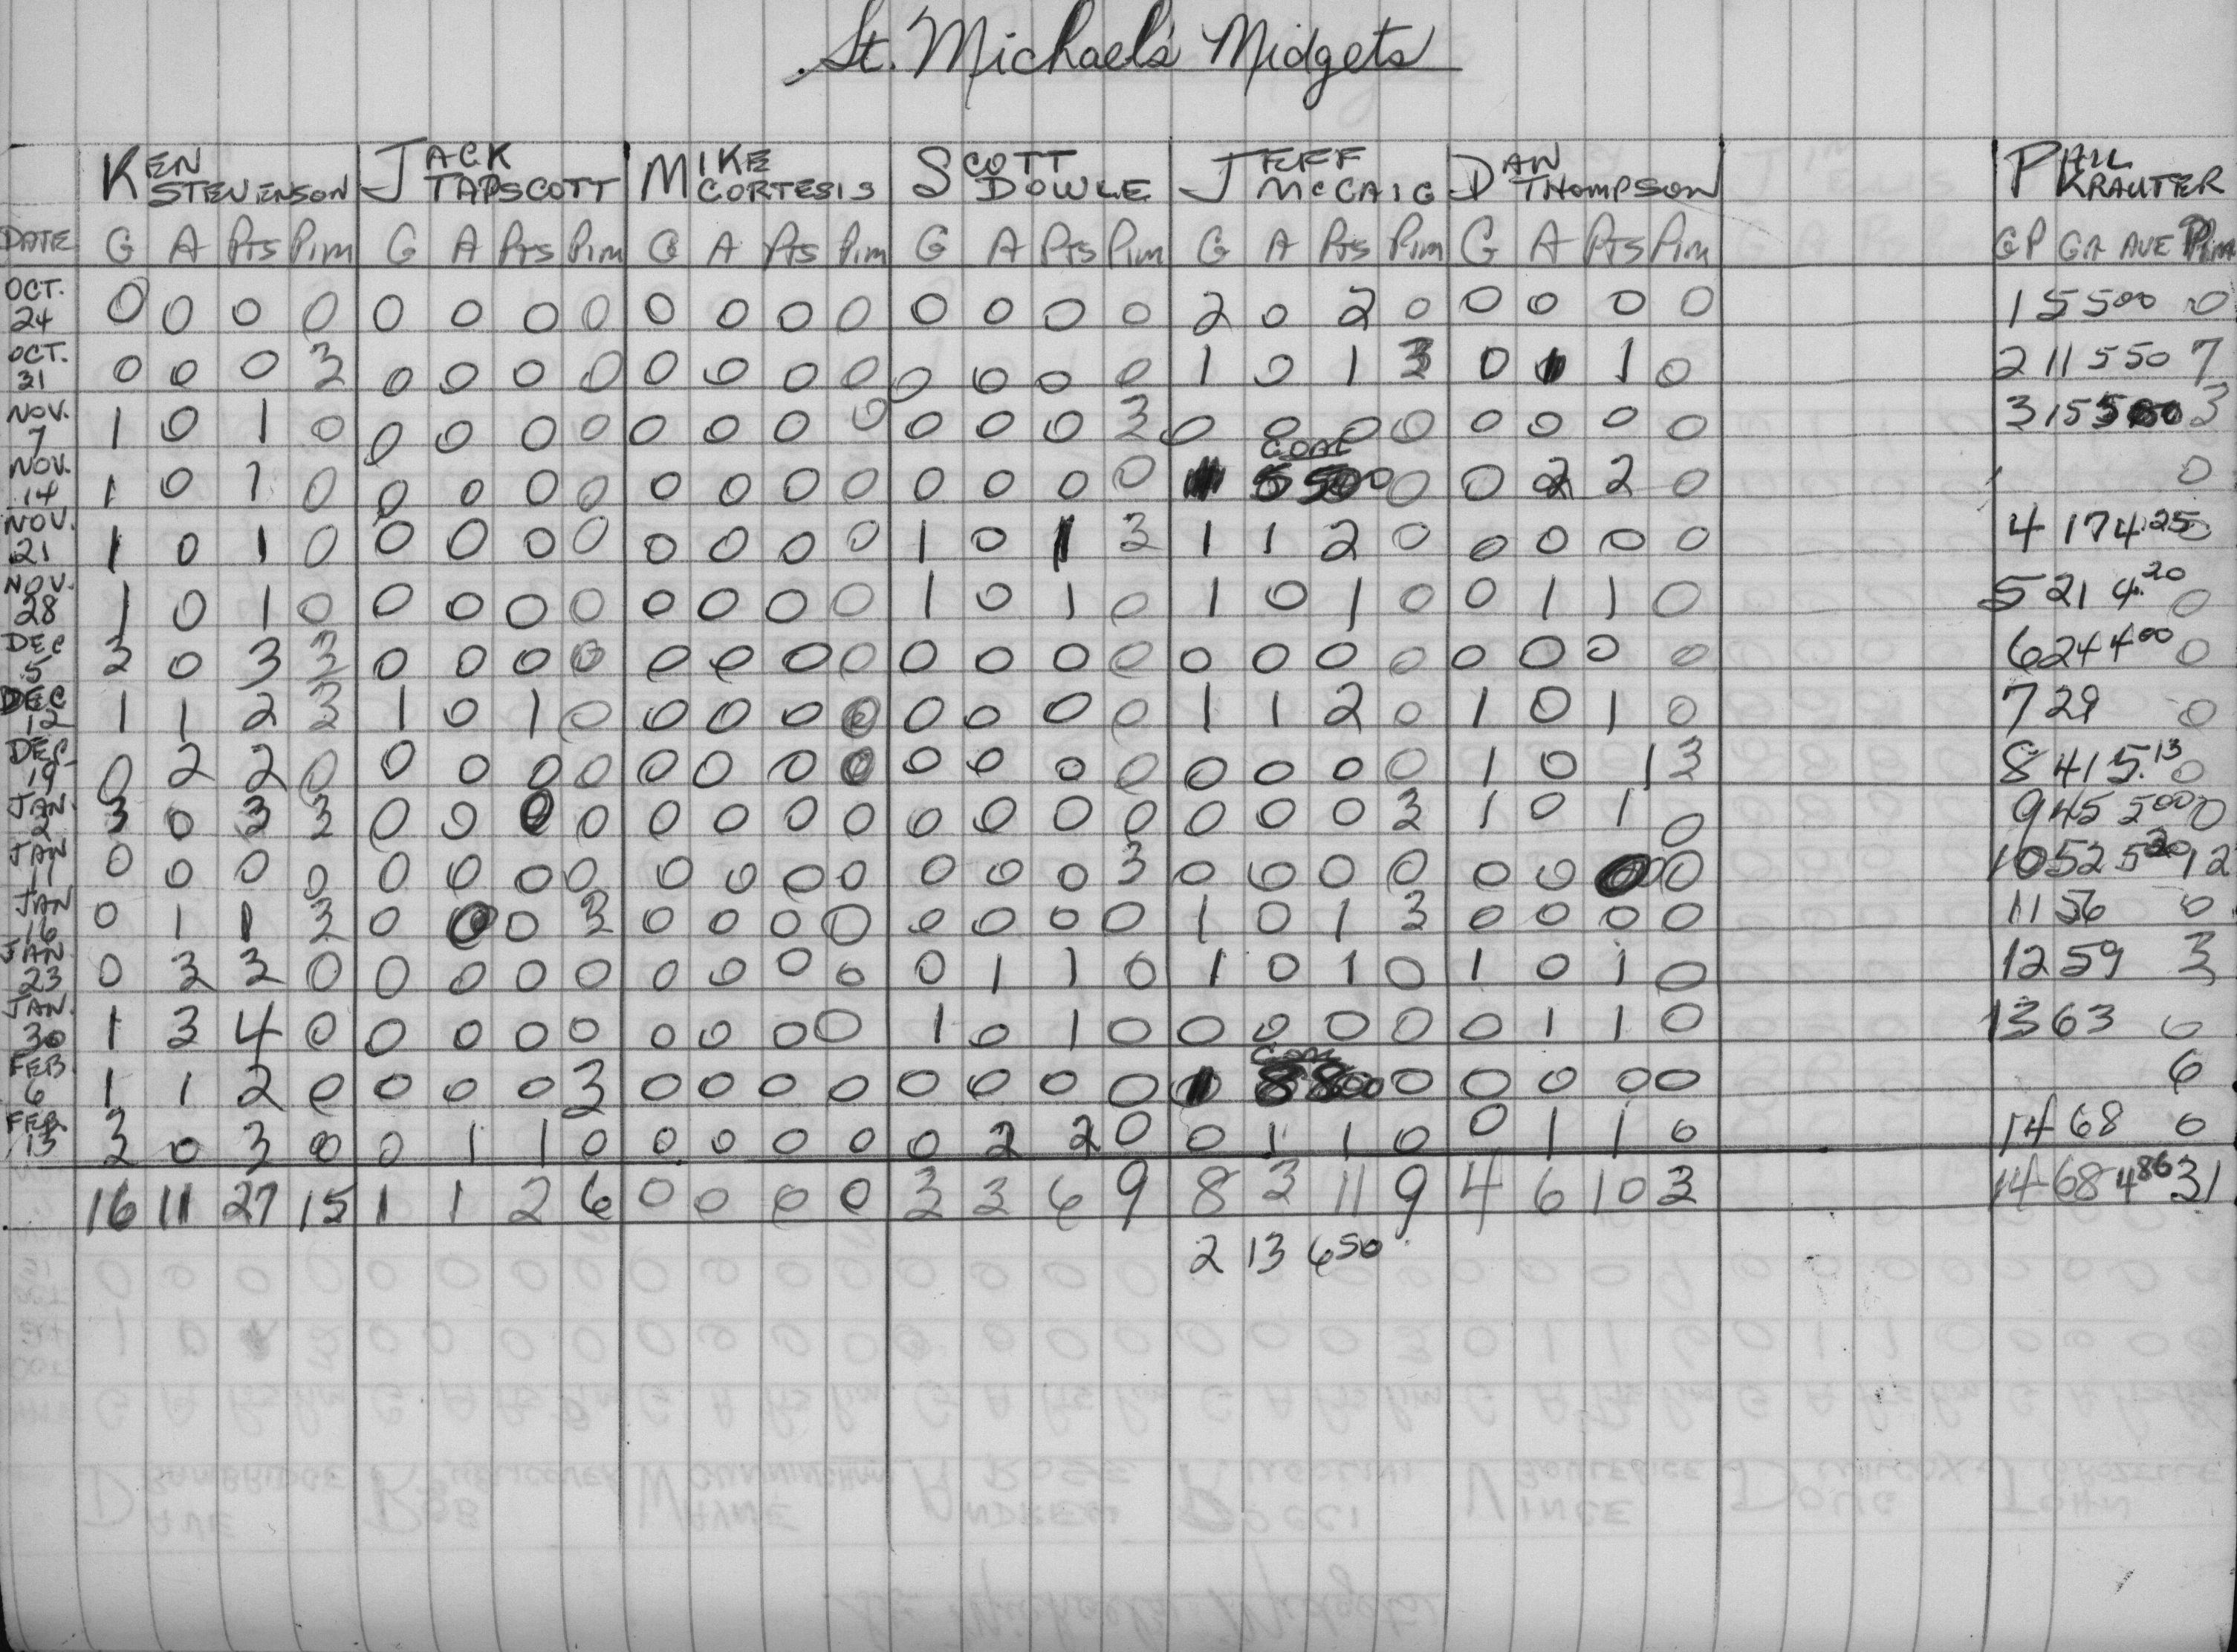 St. Michael's Midgets
KEN STEVENSON JACK TAPSCOTT MIKE CORTESIS SCOTT DOWLE JEFF McCAIG DAN THOMPSON PAUL KRAUTER
DATE G A Pts Pim G A Pts Pim G A Pts Pim G A Pts Pim G A Pts Pim G A Pts Pim GP GA AVE Pim
OCT. 24 0 0 0 0 0 0 0 0 0 0 0 0 0 0 0 0 2 0 2 0 0 0 0 0 1 5 5 00 0
OCT. 31 0 0 0 3 0 0 0 0 0 0 0 0 0 0 0 0 1 0 1 3 0 1 1 0 2 11 5 50 7
NOV. 7 1 0 1 0 0 0 0 0 0 0 0 0 0 0 0 3 0 0 0 0 0 0 0 0 3 15 5 00 3
NOV. 14 1 0 1 0 0 0 0 0 0 0 0 0 0 0 0 0 GOAL 5 5 00 0 0 2 2 0 0
NOV. 21 1 0 1 0 0 0 0 0 0 0 0 0 1 0 1 3 1 1 2 0 0 0 0 0 4 17 4.25 0
NOV. 28 1 0 1 0 0 0 0 0 0 0 0 0 1 0 1 0 1 0 1 0 0 1 1 0 5 21 4.20 0
DEC 5 3 0 3 3 0 0 0 0 0 0 0 0 0 0 0 0 0 0 0 0 0 0 0 0 6 24 4 00 0
DEC 12 1 1 2 3 1 0 1 0 0 0 0 0 0 0 0 0 1 1 2 0 1 0 1 0 7 29 0
DEC 19 0 2 2 0 0 0 0 0 0 0 0 0 0 0 0 0 0 0 0 0 1 0 1 3 8 41 5.13 0
JAN. 2 3 0 3 3 0 0 0 0 0 0 0 0 0 0 0 0 0 0 0 3 1 0 1 0 9 45 5 00 0
JAN 11 0 0 0 0 0 0 0 0 0 0 0 0 0 0 0 3 0 0 0 0 0 0 0 0 10 52 5 20 12
JAN 16 0 1 1 3 0 0 0 3 0 0 0 0 0 0 0 0 1 0 1 3 0 0 0 0 11 56 0
JAN 23 0 3 3 0 0 0 0 0 0 0 0 0 0 1 1 0 1 0 1 0 1 0 1 0 12 59 3
JAN. 30 1 3 4 0 0 0 0 0 0 0 0 0 1 0 1 0 0 0 0 0 0 1 1 0 13 63 0
FEB 6 1 1 2 0 0 0 0 3 0 0 0 0 0 0 0 0 GOAL 8 8 00 0 0 0 0 0 6
FEB. 13 3 0 3 0 0 1 1 0 0 0 0 0 0 2 2 0 0 1 1 0 0 1 1 0 14 68 0
16 11 27 15 1 1 2 6 0 0 0 0 3 3 6 9 8 3 11 9 4 6 10 3 14 68 4 86 31
2 13 6 50